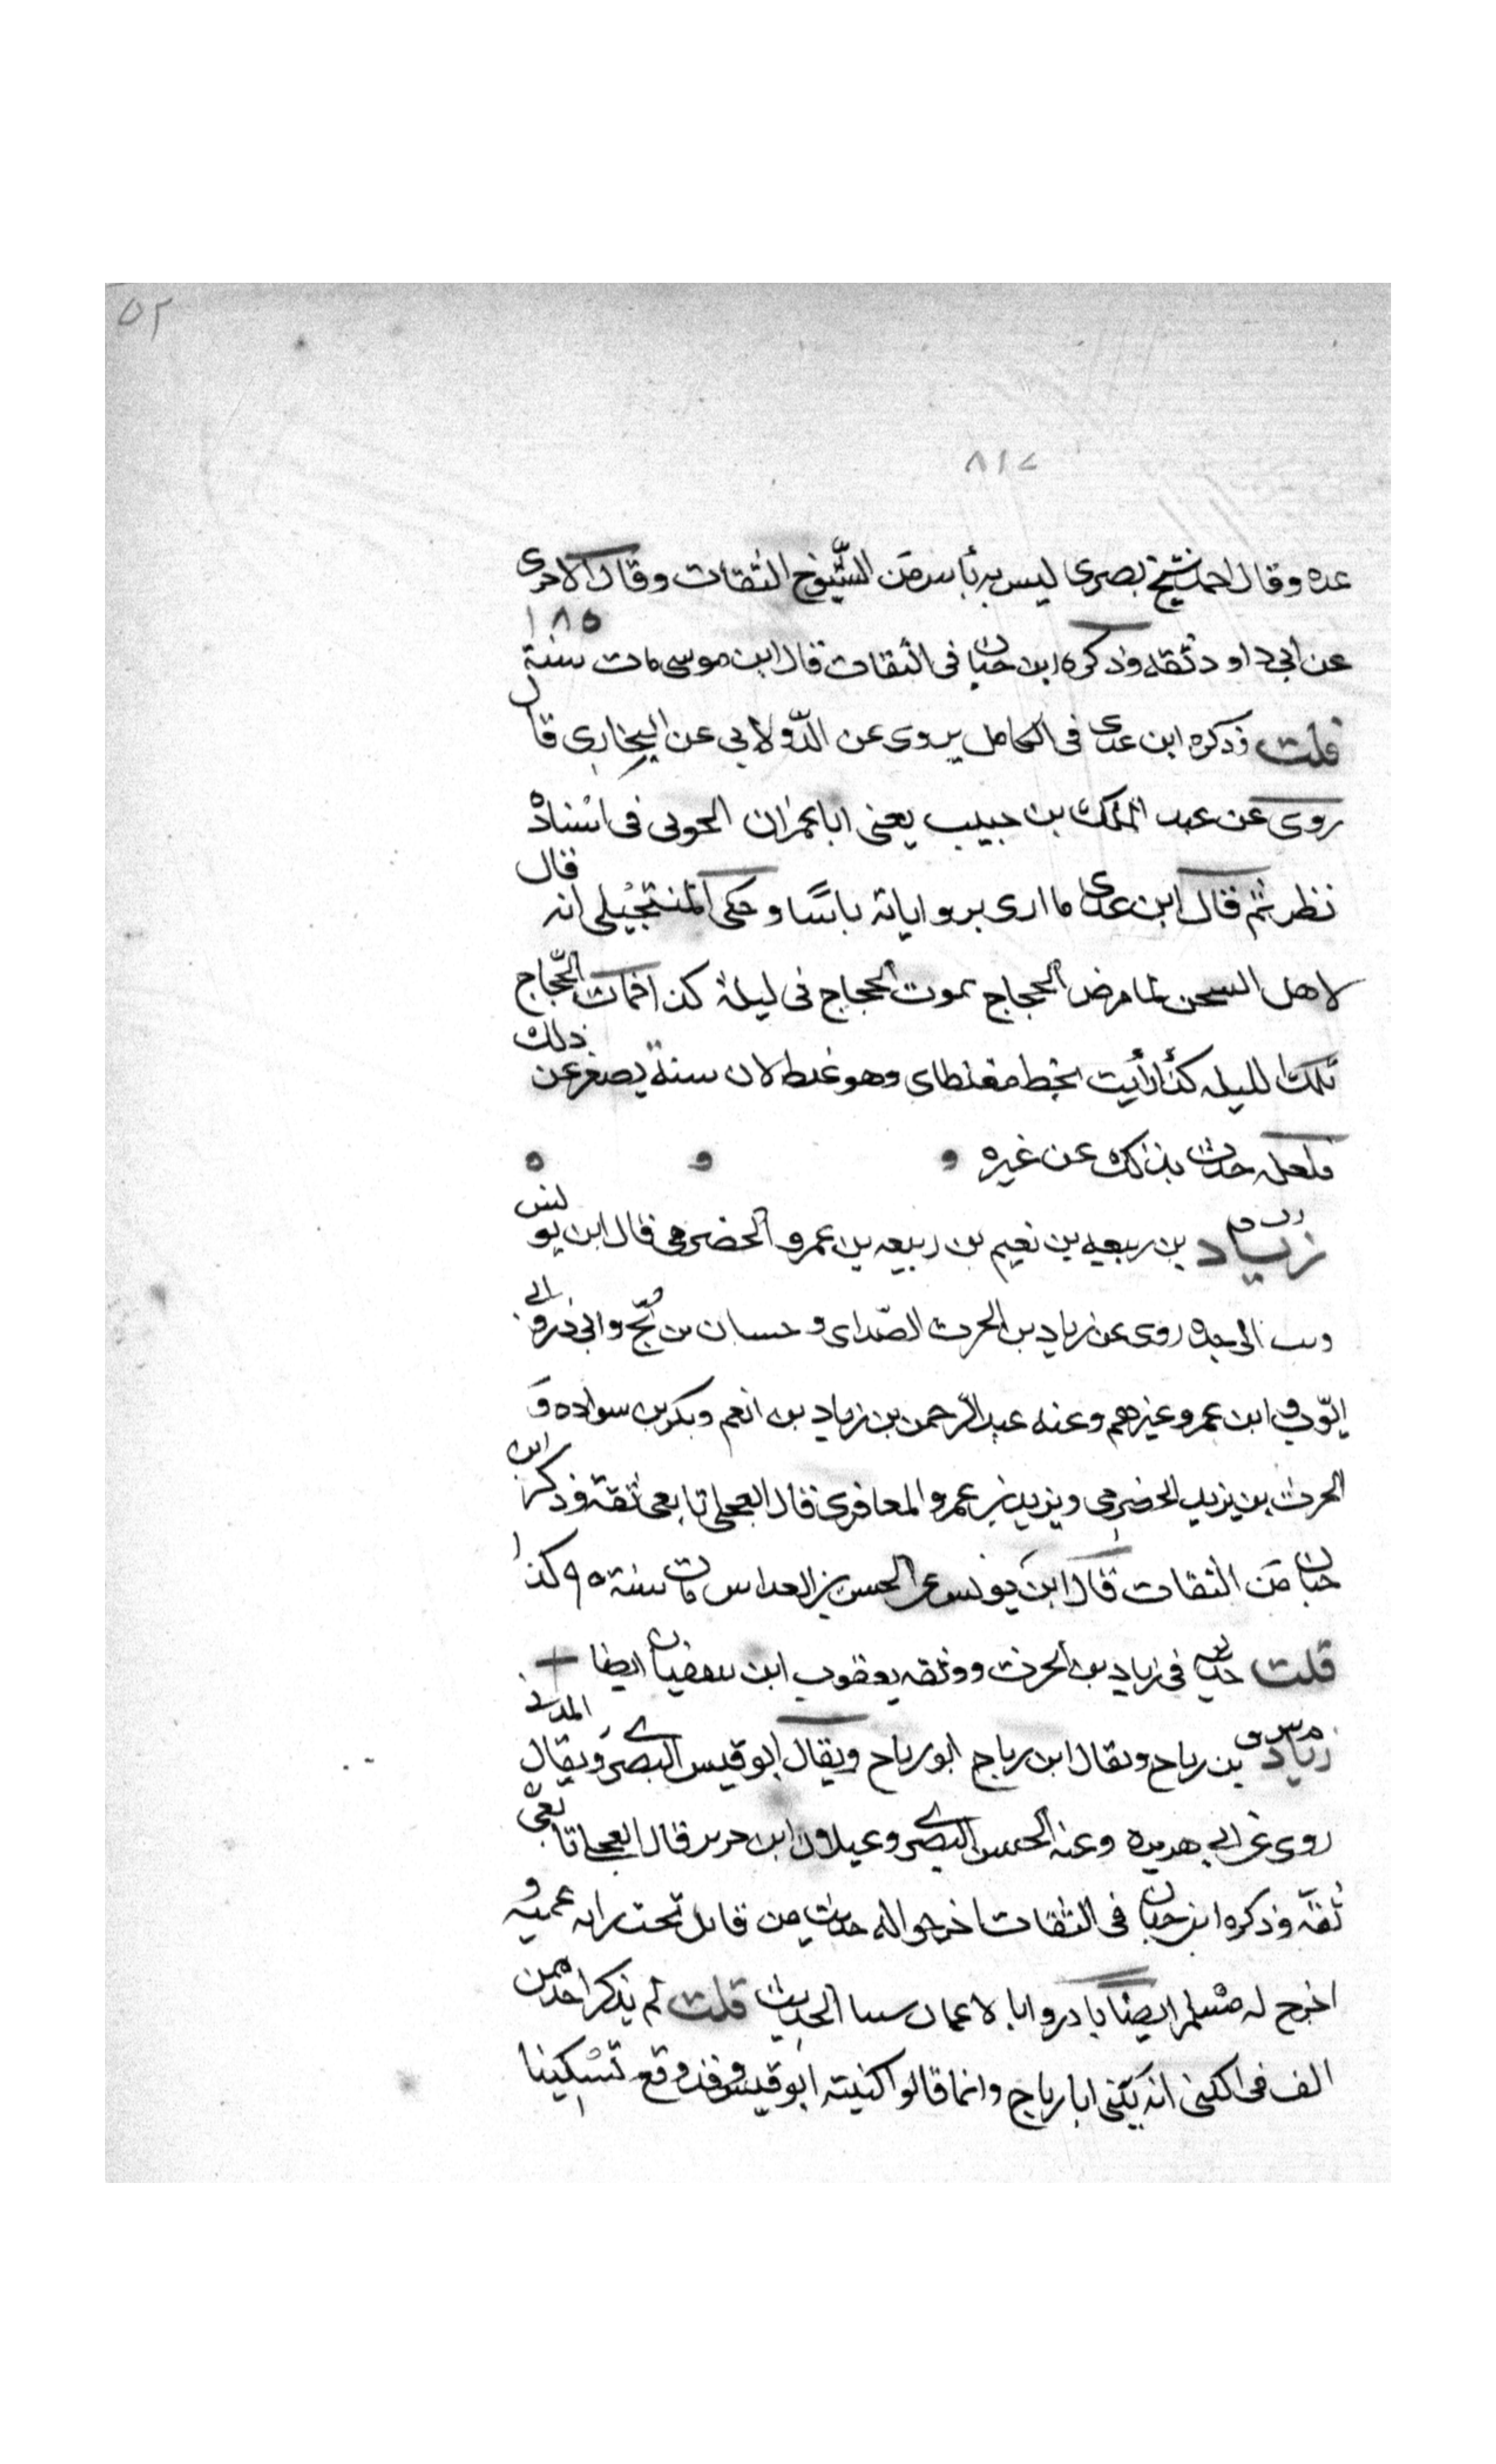 ٥٢
٨١٧
عده وقال احمد شيخ بصرى ليس به بأس من الشيوخ الثقات وقال الاجرى
عن ابى داود ثقه وذكره ابن حبان فى الثقات قال ابن موسى مات سنة ١٨٥
قلت وذكره ابن عدى فى الكامل يروى عن الدّولابى عن البخارى قال
روى عن عبد الملك بن حبيب يعنى ابا عمران الجونى فى اسناده
نظر ثم قال ابن عدى ما ارى برواياته باسًا وحكى المنتجيلى انه قال
لاهل السجن لما مرض الحجاج يموت الحجاج فى ليلة كذا فمات الحجّاج
تلك الليله كذا رأيت بخط مغلطاى وهو غلط لان سنة يصغر عن ذلك
فلعله حدث بذلك عن غيره
زياد بن ربيعه بن نعيم بن ربيعه بن عمرو الحضرمى قال ابن يونس
ونسب الى جده روى عن زياد بن الحرث الصّداى وحسان بن بُحّ وابى ذر وابى
ايّوب وابن عمر وغيرهم وعنه عبد الرحمن بن زياد بن انعم وبكر بن سواده وَ
الحرث بن يزيد الحضرمى ويزيد بن عمرو المعافرى قال العجلى تابعى ثقة وذكر ابن
حبان من الثقات قال ابن يونس عن الحسن بن العداس مات سنة ٩٥ كذا
قلت حديثه فى زياد بن الحرث ووثقه يعقوب ابن سفيان ايضا
زياد بن رياح ويقال ابن رباح ابو رياح ويقال ابو قيس البصرى ويقال المدنى
روى عن ابى هريره وعنه الحسن البصرى وغيلان ابن جرير قال العجلى تابعىّ
ثقة وذكره ابن حبان فى الثقات اخرجوا له حديث من قاتل تحت رايه عميه و
اخرج له مسلم ايضا بادروا بالاعمال ستا الحديث قلت لم يذكر احد ممن
الف فى الكنى انه يكنى ابا رباح وانما قالوا كنيته ابو قيس وقد وقع تسكينا